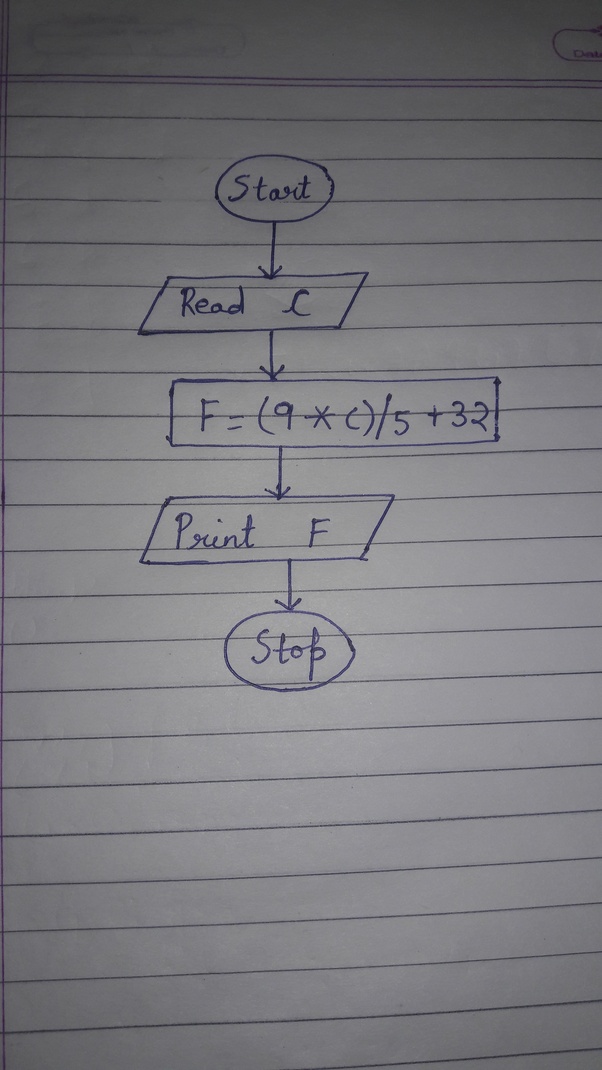 Date
Start
Read C
F = (9 * C)/5 + 32
Print F
Stop